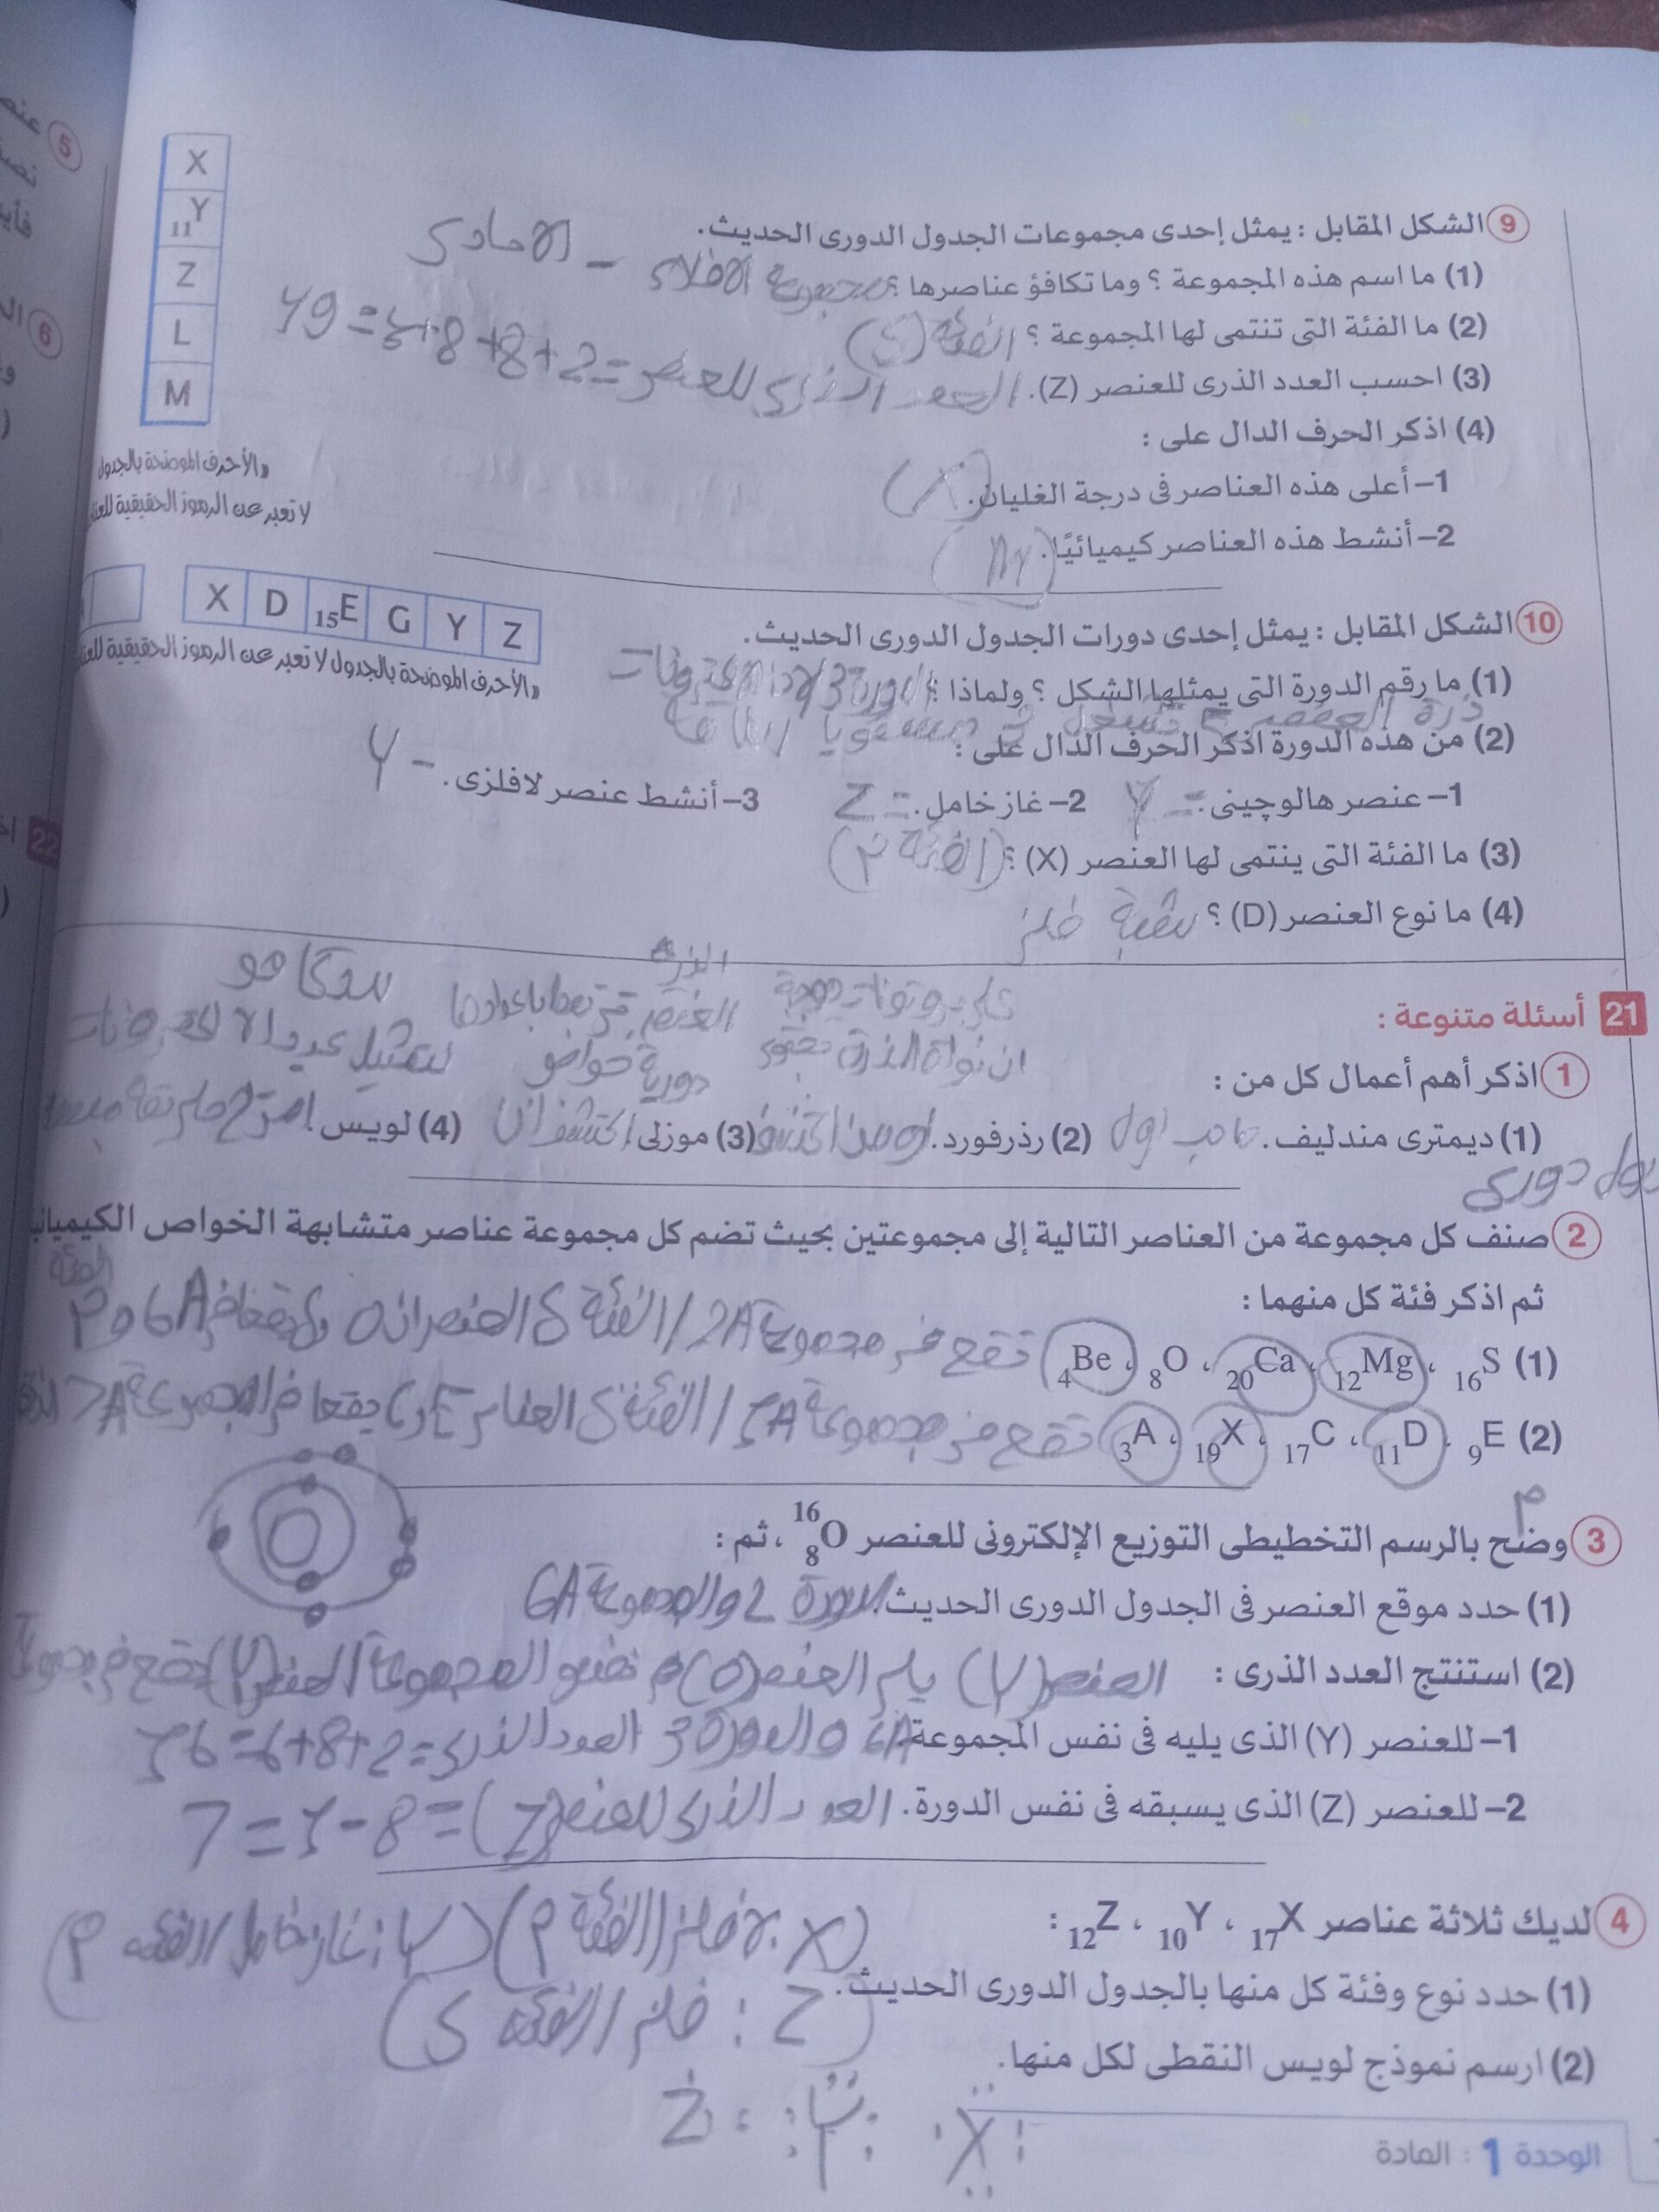 X
₁₁Y
Z
L
M
«الأحرف الموضحة بالجدول
لا تعبر عن الرموز الحقيقية للعنا
9 الشكل المقابل : يمثل إحدى مجموعات الجدول الدورى الحديث.
(1) ما اسم هذه المجموعة ؟ وما تكافؤ عناصرها ؟ مجموعة الاقلاء – الاحادى
(2) ما الفئة التى تنتمى لها المجموعة ؟ الفئة (s)
(3) احسب العدد الذرى للعنصر (Z). العدد الذرى للعنصر = 2+8+8+1 = 19
(4) اذكر الحرف الدال على :
1– أعلى هذه العناصر فى درجة الغليان. (X)
2– أنشط هذه العناصر كيميائيًا. (M)
X D ₁₅E G Y Z
«الأحرف الموضحة بالجدول لا تعبر عن الرموز الحقيقية للعنا
10 الشكل المقابل : يمثل إحدى دورات الجدول الدورى الحديث.
(1) ما رقم الدورة التى يمثلها الشكل ؟ ولماذا ؟ الدورة 3 لان الالكترونات
ذرة العنصر تشغل 3 مستويات طاقة
(2) من هذه الدورة اذكر الحرف الدال على :
1– عنصر هالوچينى. = Y 2– غاز خامل. = Z 3– أنشط عنصر لافلزى. – Y
(3) ما الفئة التى ينتمى لها العنصر (X) ؟ (الفئة P)
(4) ما نوع العنصر (D) ؟ شبة فلز
21 أسئلة متنوعة :
1 اذكر أهم أعمال كل من :
(1) ديمترى مندليف. صاحب اول
جدول دورى
(2) رذرفورد. اول من اكتشف
ان نواة الذرة تحتوى
على بروتونات موجبة
(3) موزلى اكتشف ان
دورية خواص
العنصر ترتبط باعدادها
الذرية
(4) لويس. اقترح طريقة مبسطة
لتمثيل عدد الالكترونات
2 صنف كل مجموعة من العناصر التالية إلى مجموعتين بحيث تضم كل مجموعة عناصر متشابهة الخواص الكيميائية
ثم اذكر فئة كل منهما :
(1) ₁₆S ، ₁₂Mg ، ₂₀Ca ، ₈O ، ₄Be تقع فى مجموعة 2A / الفئة s العنصران O و S يقعا فى 6A الفئة P
(2) ₉E ، ₁₁D ، ₁₇C ، ₁₉X ، ₃A تقع فى مجموعة 1A / الفئة s العناصر E و C يقعا فى المجموعة 7A الفئة
P
3 وضح بالرسم التخطيطى التوزيع الإلكترونى للعنصر ¹⁶₈O ، ثم :
(1) حدد موقع العنصر فى الجدول الدورى الحديث. الدورة 2 والمجموعة 6A
(2) استنتج العدد الذرى : العنصر (Y) يلى العنصر (O) فى نفس المجموعة / العنصر (Y) يقع فى مجموعة
1– للعنصر (Y) الذى يليه فى نفس المجموعة 6A والدورة 3 العدد الذرى = 2+8+6 = 16
2– للعنصر (Z) الذى يسبقه فى نفس الدورة. العدد الذرى للعنصر (Z) = 8–1 = 7
4 لديك ثلاثة عناصر ₁₇X ، ₁₀Y ، ₁₂Z :
(X: لا فلز / الفئة P) (Y: غاز خامل / الفئة P)
(1) حدد نوع وفئة كل منها بالجدول الدورى الحديث. (Z : فلز / الفئة s)
(2) ارسم نموذج لويس النقطى لكل منها.
X Y Z
الوحدة 1 : المادة
5
عنص
نصف
فأي
6
22